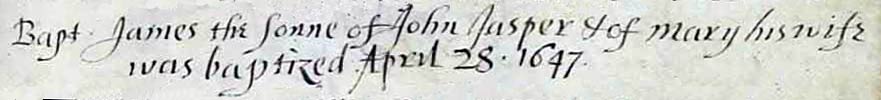 Bapt. James the sonne of John Jasper & of Mary his wife
was baptized April 28. 1647.